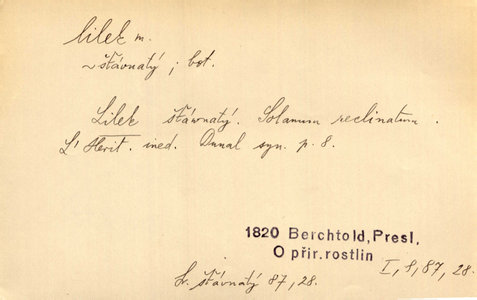 lilek m.
~ šťávnatý ; bot.
Lilek šťávnatý. Solanum reclinatum.
L' Herit. ined. Dunal syn. p. 8.
1820 Berchtold, Presl,
O přir. rostlin I, S, 87, 28.
Sr. šťávnatý 87, 28.